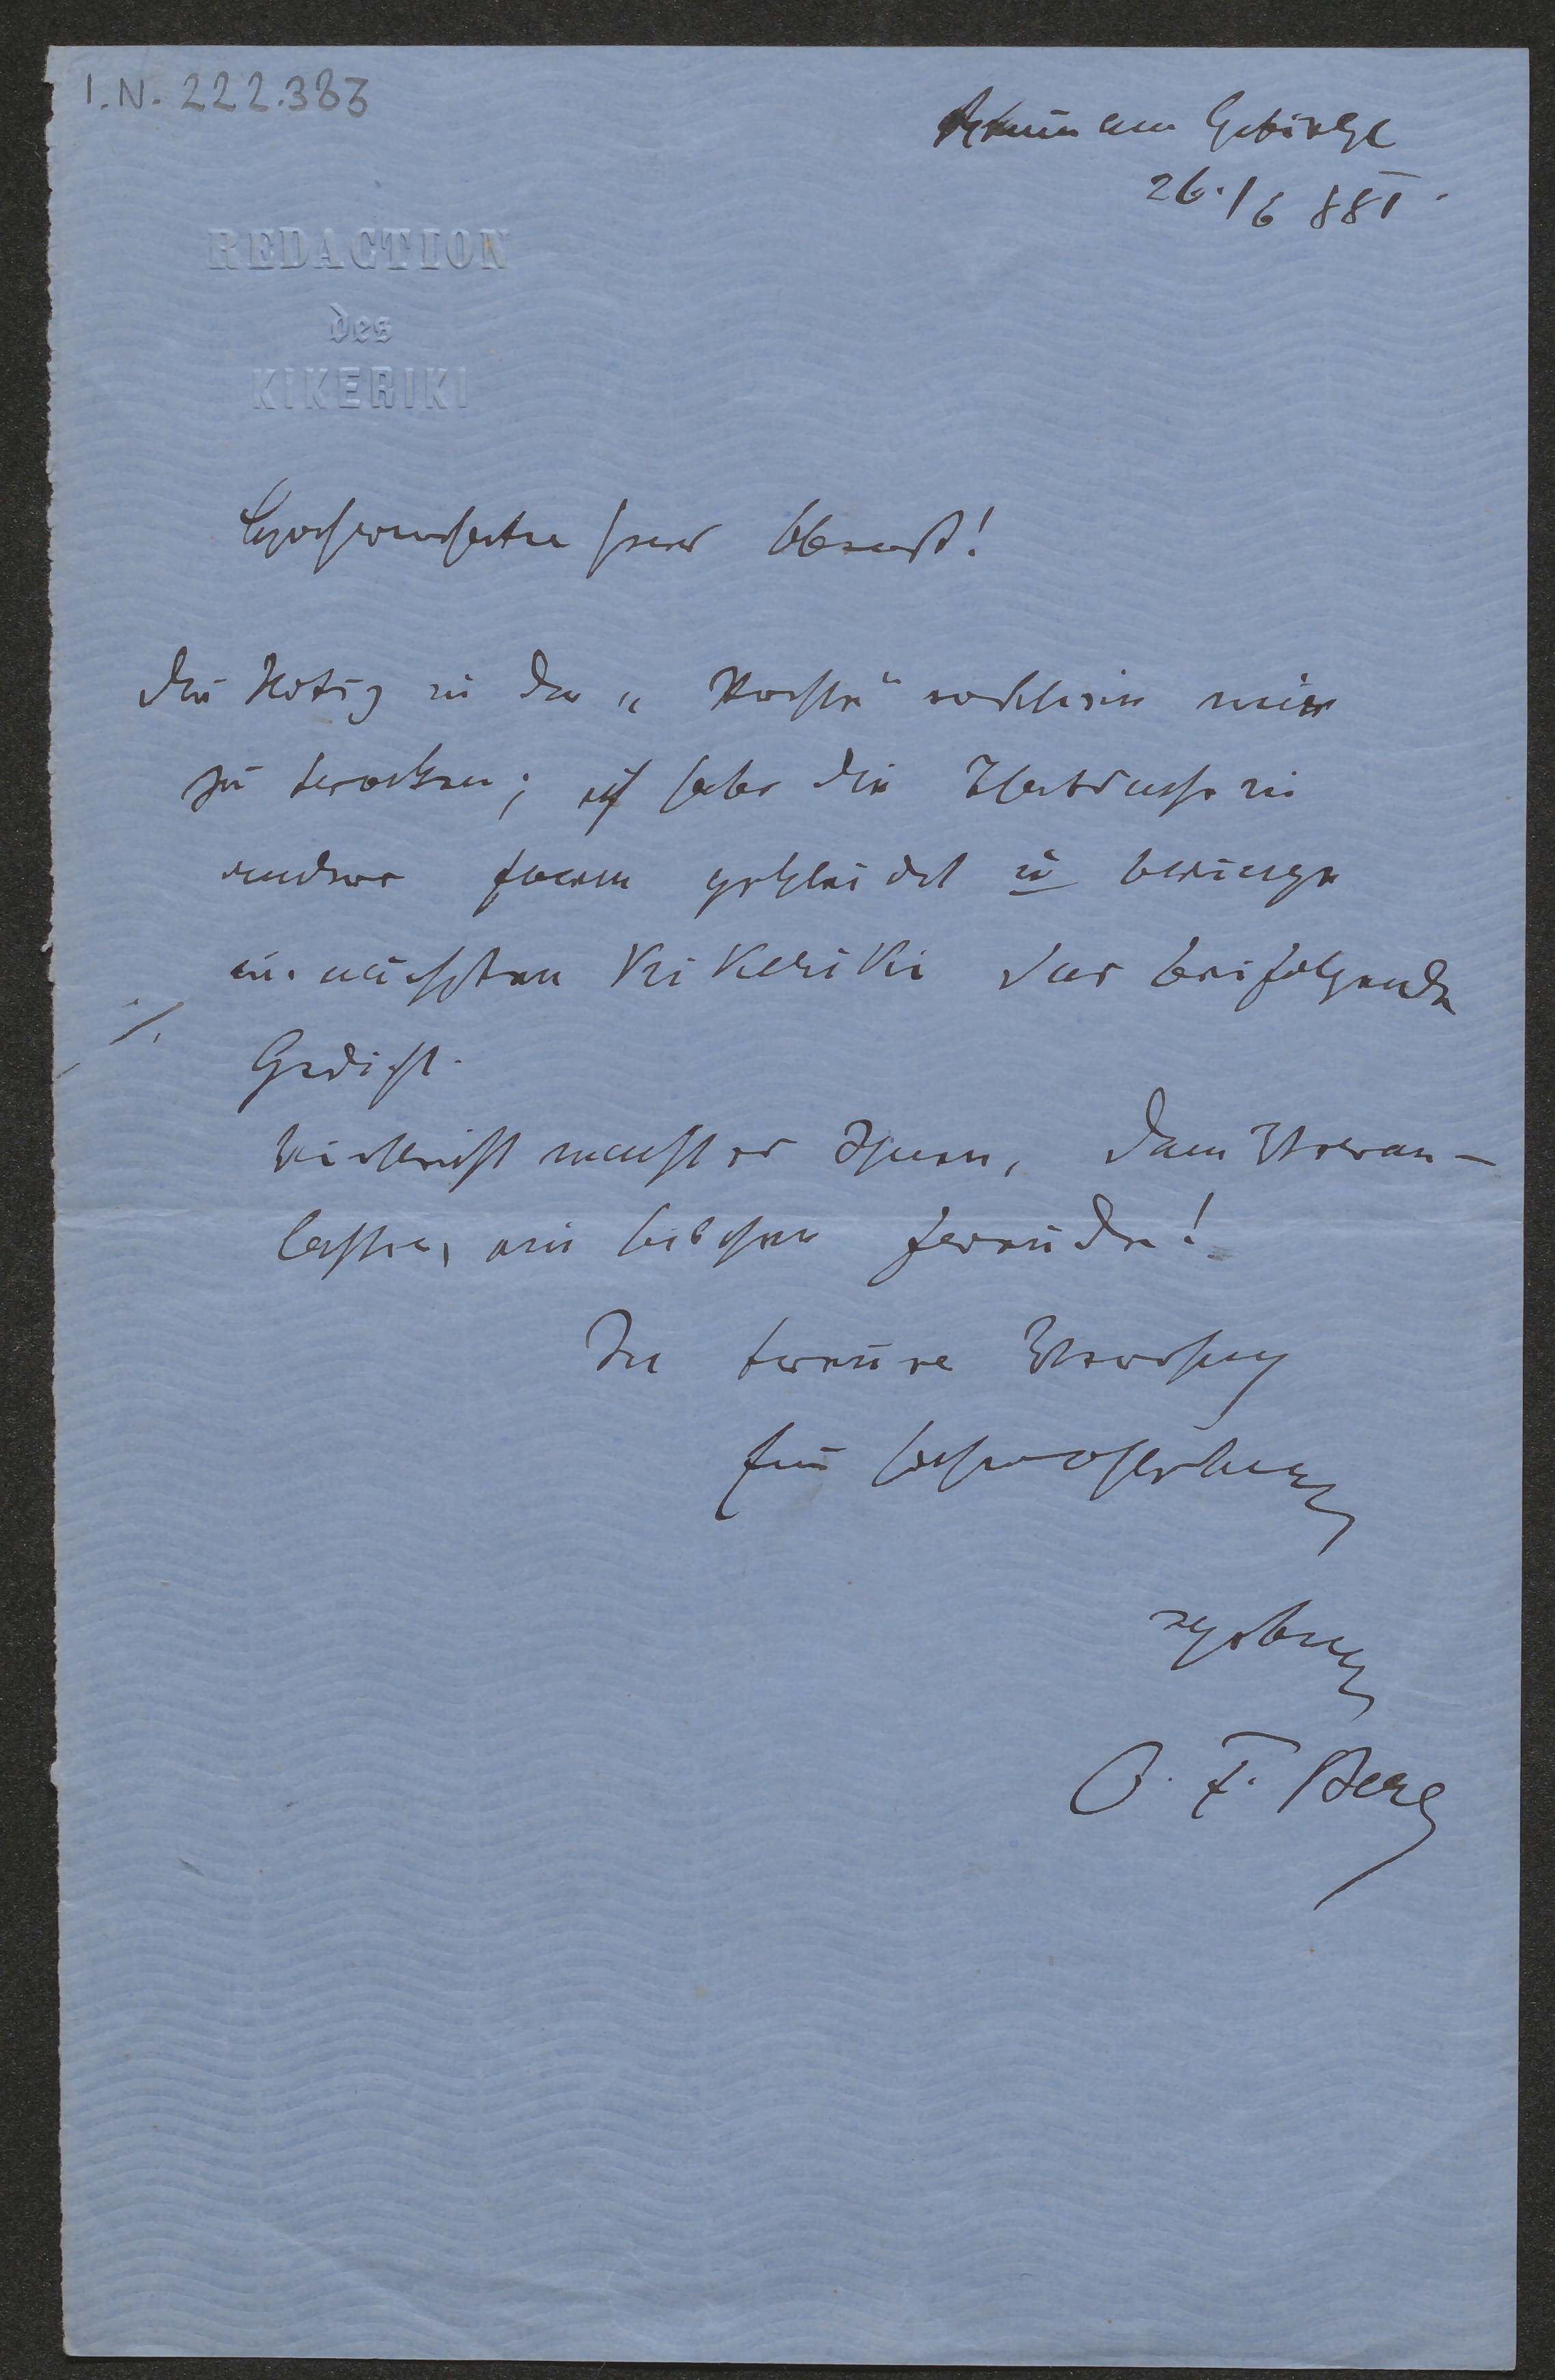 I.N. 222.383
Brunn am Gebirge
26./6 881.
REDACTION
des
KIKERIKI
Hochverehrter Herr Oberst!
Die Notiz in der „Woche" erschien mir
zu trocken; ich habe die Thatsache in
andere Form gekleidet u bringe
im nächsten Kikeriki das beifolgende
./.
Gedicht.
Vielleicht macht es Ihnen, dem Veran-
lasser, ein bischen Freude!
In treuer Verehrung
Euer Hochwohlgeboren
ergebener
O. F. Berg